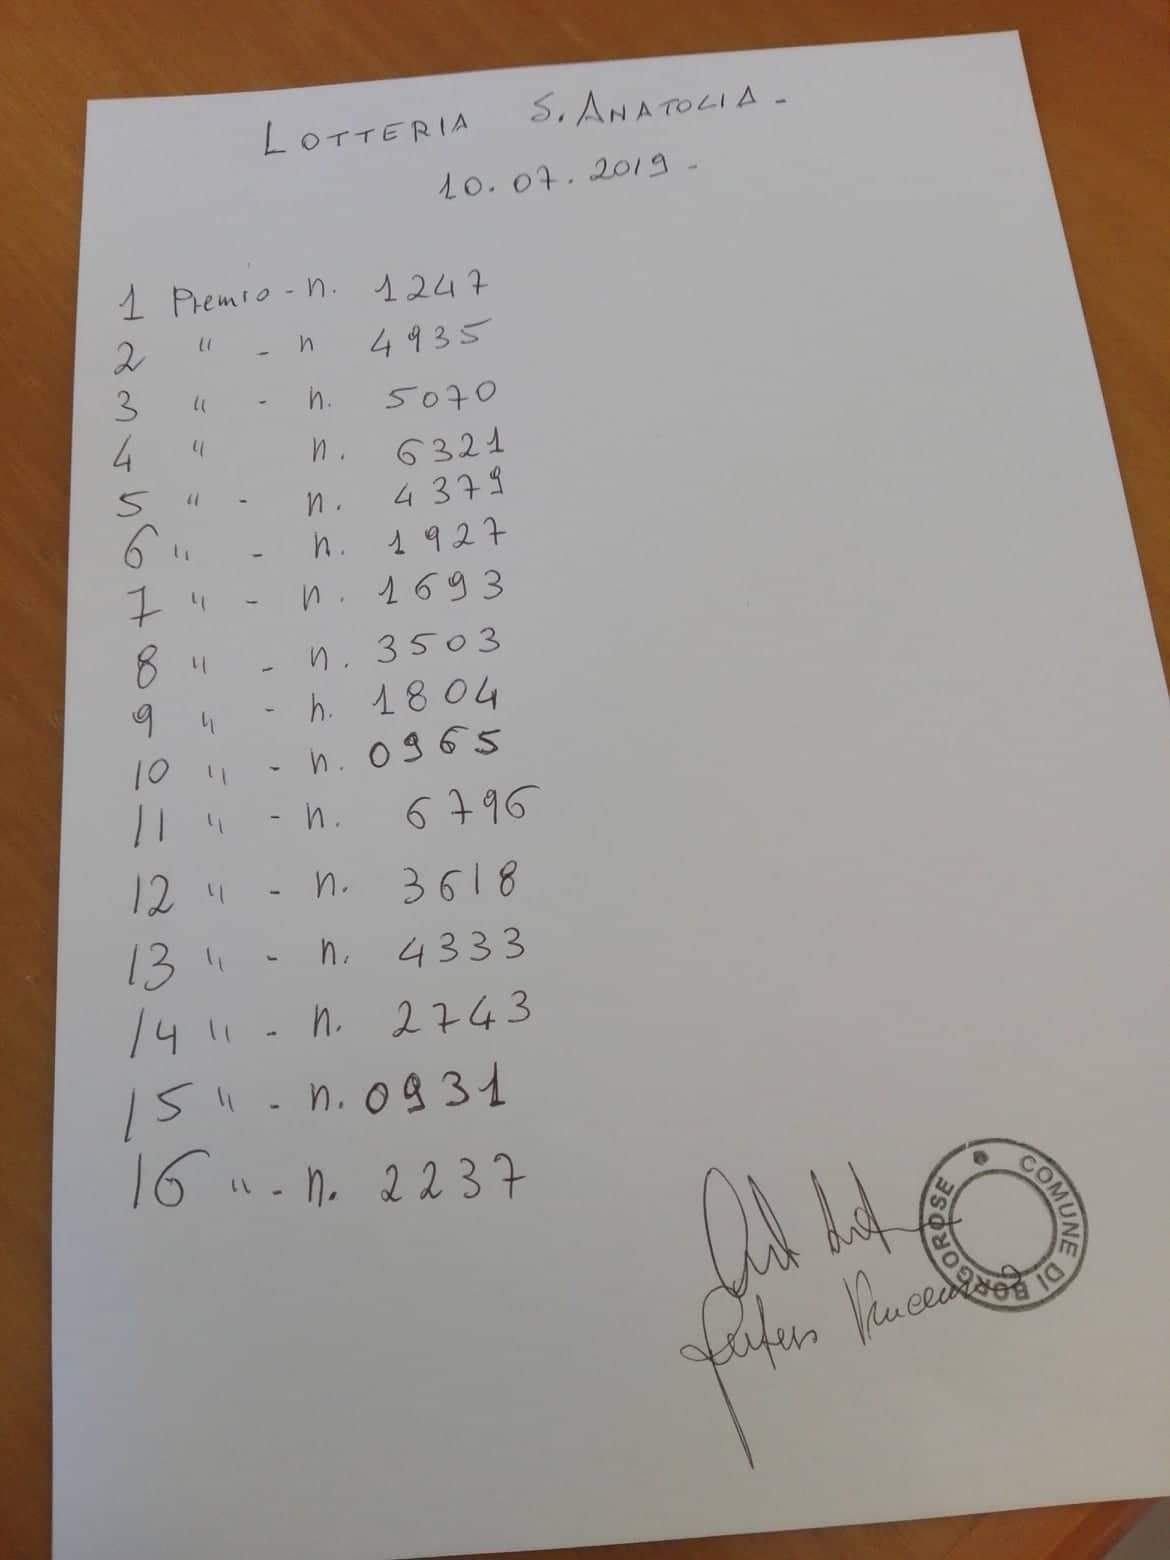 LOTTERIA S. ANATOLIA -
10.07.2019 -
1 Premio - n. 1247
2 " - n 4935
3 " - n. 5070
4 " n. 6321
5 " - n. 4379
6 " - n. 1927
7 " - n. 1693
8 " - n. 3503
9 " - n. 1804
10 " - n. 0965
11 " - n. 6796
12 " - n. 3618
13 " - n. 4333
14 " - n. 2743
15 " - n. 0931
16 " - n. 2237
COMUNE DI BORGOROSE